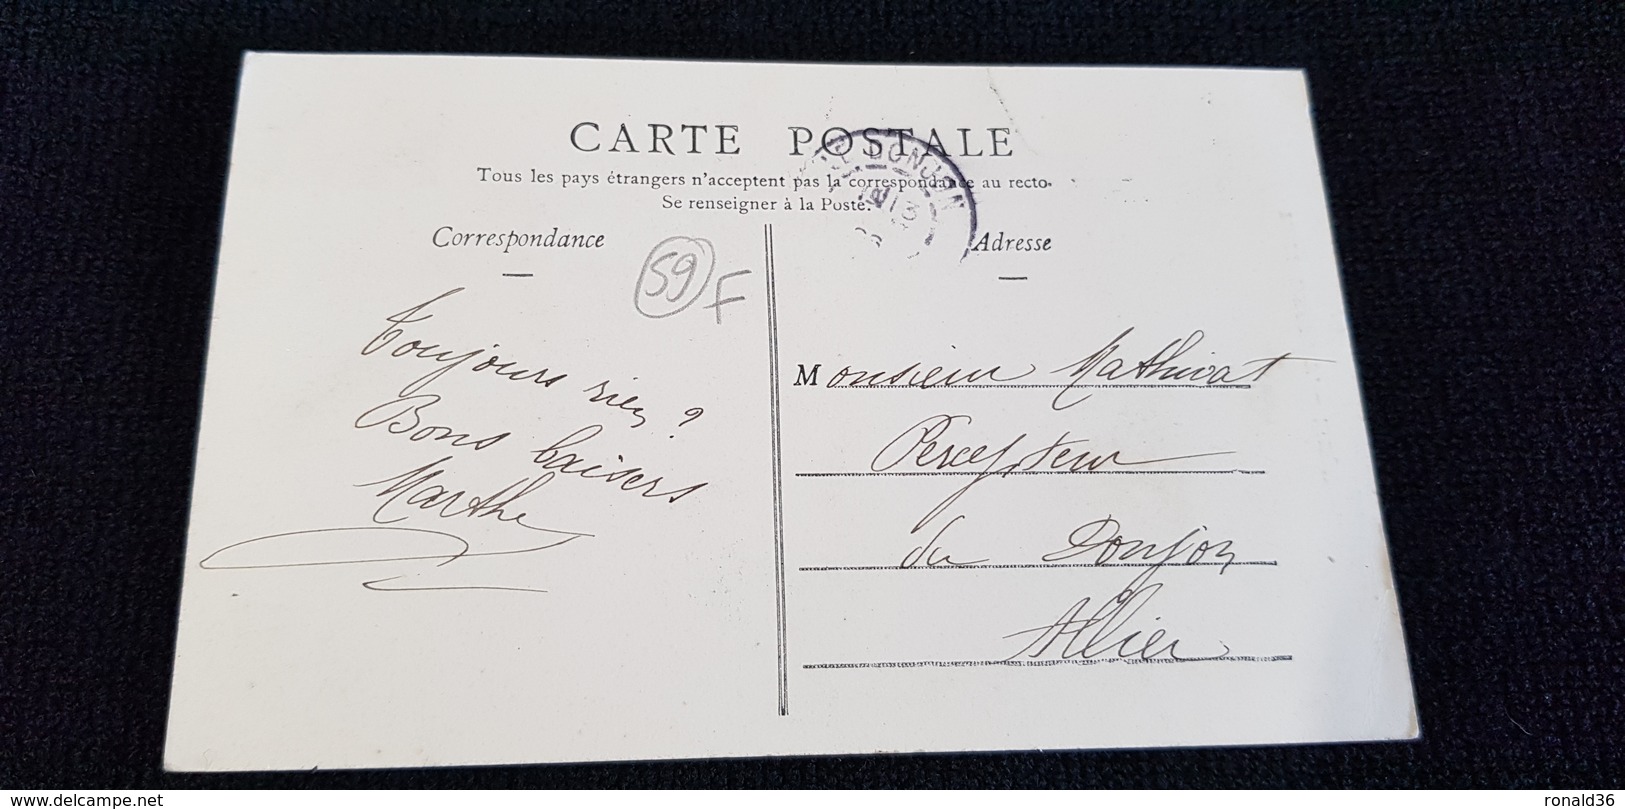 CARTE POSTALE
Tous les pays étrangers n'acceptent pas la correspondance au recto.
Se renseigner à la Poste.
LE DONJON
13
Correspondance
Adresse
59 F
Toujours rien ?
Bons baisers
Marthe
Monsieur Mathivat
Percepteur
du Donjon
Allier
© delcampe.net
ronald36